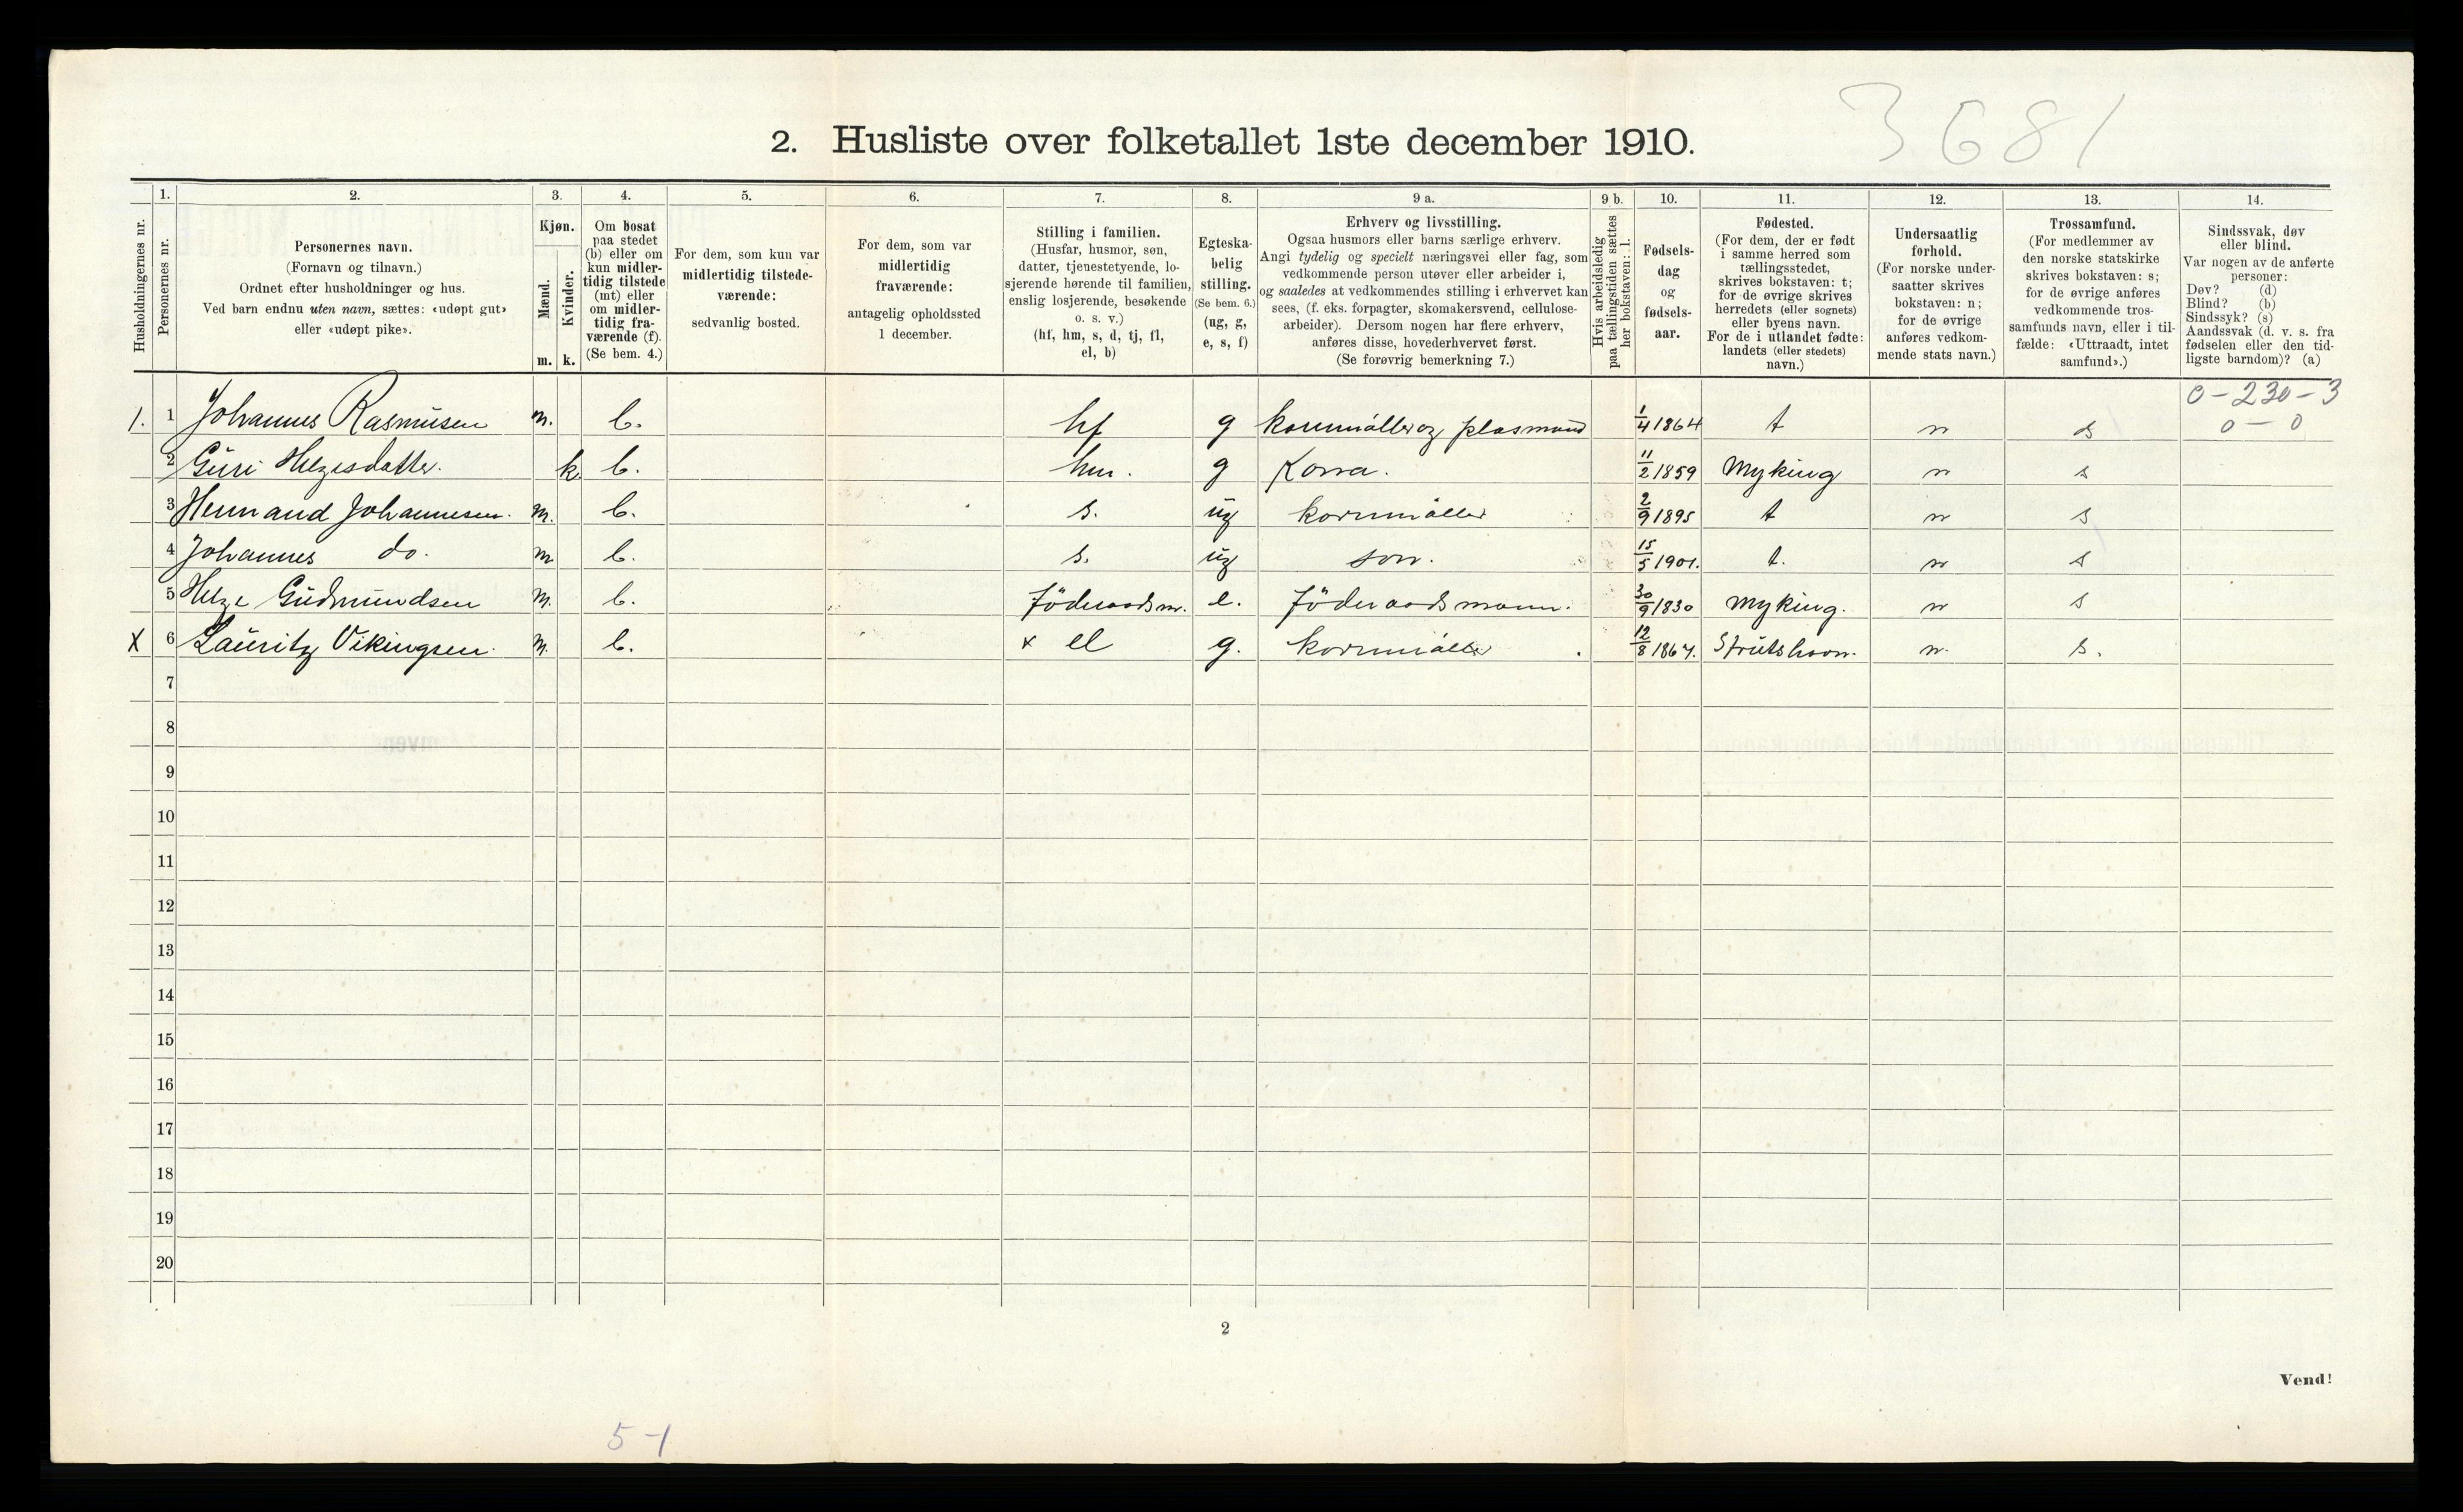 3681
2. Husliste over folketallet 1ste december 1910.
Husholdningernes nr.
1.
Personernes nr.
2.
Personernes navn.
(Fornavn og tilnavn.)
Ordnet efter husholdninger og hus.
Ved barn endnu uten navn, sættes: «udøpt gut»
eller «udøpt pike».
3.
Kjøn.
Mænd.
Kvinder.
m. k.
4.
Om bosat
paa stedet
(b) eller om
kun midler-
tidig tilstede
(mt) eller
om midler-
tidig fra-
værende (f).
(Se bem. 4.)
5.
For dem, som kun var
midlertidig tilstede-
værende:
sedvanlig bosted.
6.
For dem, som var
midlertidig
fraværende:
antagelig opholdssted
1 december.
7.
Stilling i familien.
(Husfar, husmor, søn,
datter, tjenestetyende, lo-
sjerende hørende til familien,
enslig losjerende, besøkende
o. s. v.)
(hf, hm, s, d, tj, fl,
el, b)
8.
Egteska-
belig
stilling.
(Se bem. 6.)
(ug, g,
e, s, f)
9 a.
Erhverv og livsstilling.
Ogsaa husmors eller barns særlige erhverv.
Angi tydelig og specielt næringsvei eller fag, som
vedkommende person utøver eller arbeider i,
og saaledes at vedkommendes stilling i erhvervet kan
sees, (f. eks. forpagter, skomakersvend, cellulose-
arbeider). Dersom nogen har flere erhverv,
anføres disse, hovederhvervet først.
(Se forøvrig bemerkning 7.)
9 b.
Hvis arbeidsledig
paa tællingstiden sættes
her bokstaven: l.
10.
Fødsels-
dag
og
fødsels-
aar.
11.
Fødested.
(For dem, der er født
i samme herred som
tællingsstedet,
skrives bokstaven: t;
for de øvrige skrives
herredets (eller sognets)
eller byens navn.
For de i utlandet fødte:
landets (eller stedets)
navn.)
12.
Undersaatlig
forhold.
(For norske under-
saatter skrives
bokstaven: n;
for de øvrige
anføres vedkom-
mende stats navn.)
13.
Trossamfund.
(For medlemmer av
den norske statskirke
skrives bokstaven: s;
for de øvrige anføres
vedkommende tros-
samfunds navn, eller i til-
fælde: «Uttraadt, intet
samfund».)
14.
Sindssvak, døv
eller blind.
Var nogen av de anførte
personer:
Døv? (d)
Blind? (b)
Sindssyk? (s)
Aandssvak (d. v. s. fra
fødselen eller den tid-
ligste barndom)? (a)
0 - 230 - 3
0 - 0
1. 1 Johannes Rasmusen m. b. hf g kornmøller og plasmand 1/4 1864 t n s
2 Guri Helgesdatter. k b. hm. g Kona. 11/2 1859 Myking n s
3 Hermand Johannesen. m. b. s. ug kornmøller 2/9 1895 t n s
4 Johannes do. m b. s. ug son. 15/5 1901. t. n s
5 Helge Gudmundsen m. b. föderaadsm. e. föderaadsmann. 30/9 1830 Myking. n s
X 6 Lauritz Vikingsen. m. b. x el g. kornmøller 12/8 1867. Strutshavn. n. s.
7
8
9
10
11
12
13
14
15
16
17
18
19
20
2
Vend!
5-1